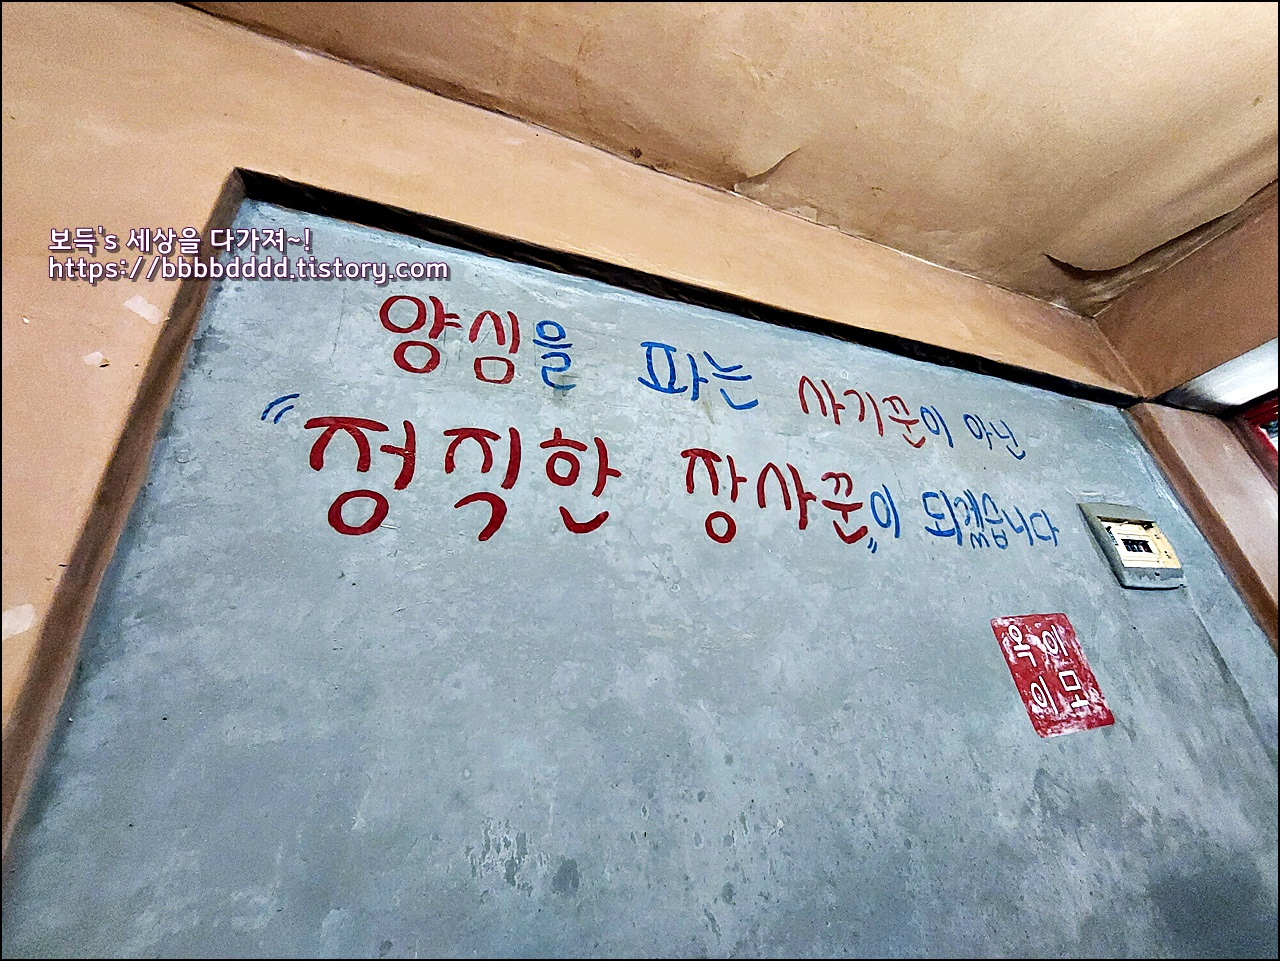 보득's 세상을 다가져~!
https://bbbbdddd.tistory.com
양심을 파는 사기꾼이 아닌
"정직한 장사꾼"이 되겠습니다
옥이
이모